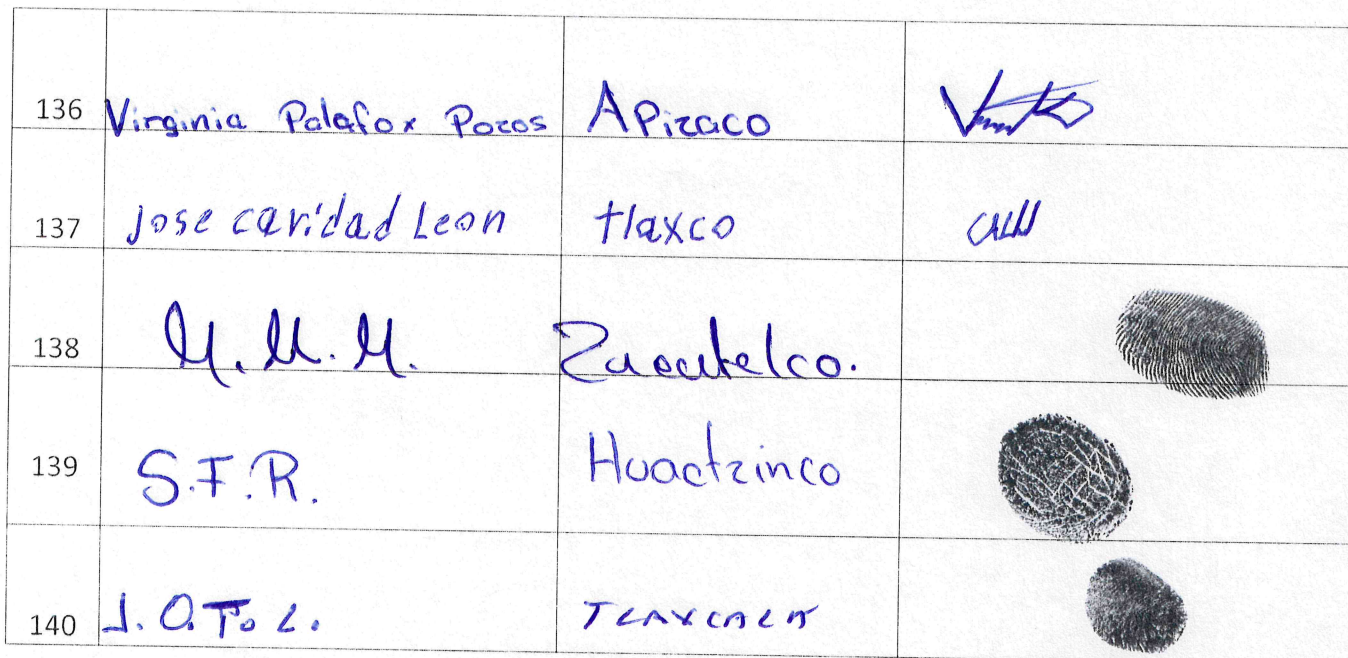 136 Virginia Palafox Pozos Apizaco
137 jose caridad Leon tlaxco
138 M. M. M. Zacatelco.
139 S.F.R. Huactzinco
140 J. O. T. L. TLAXCALA